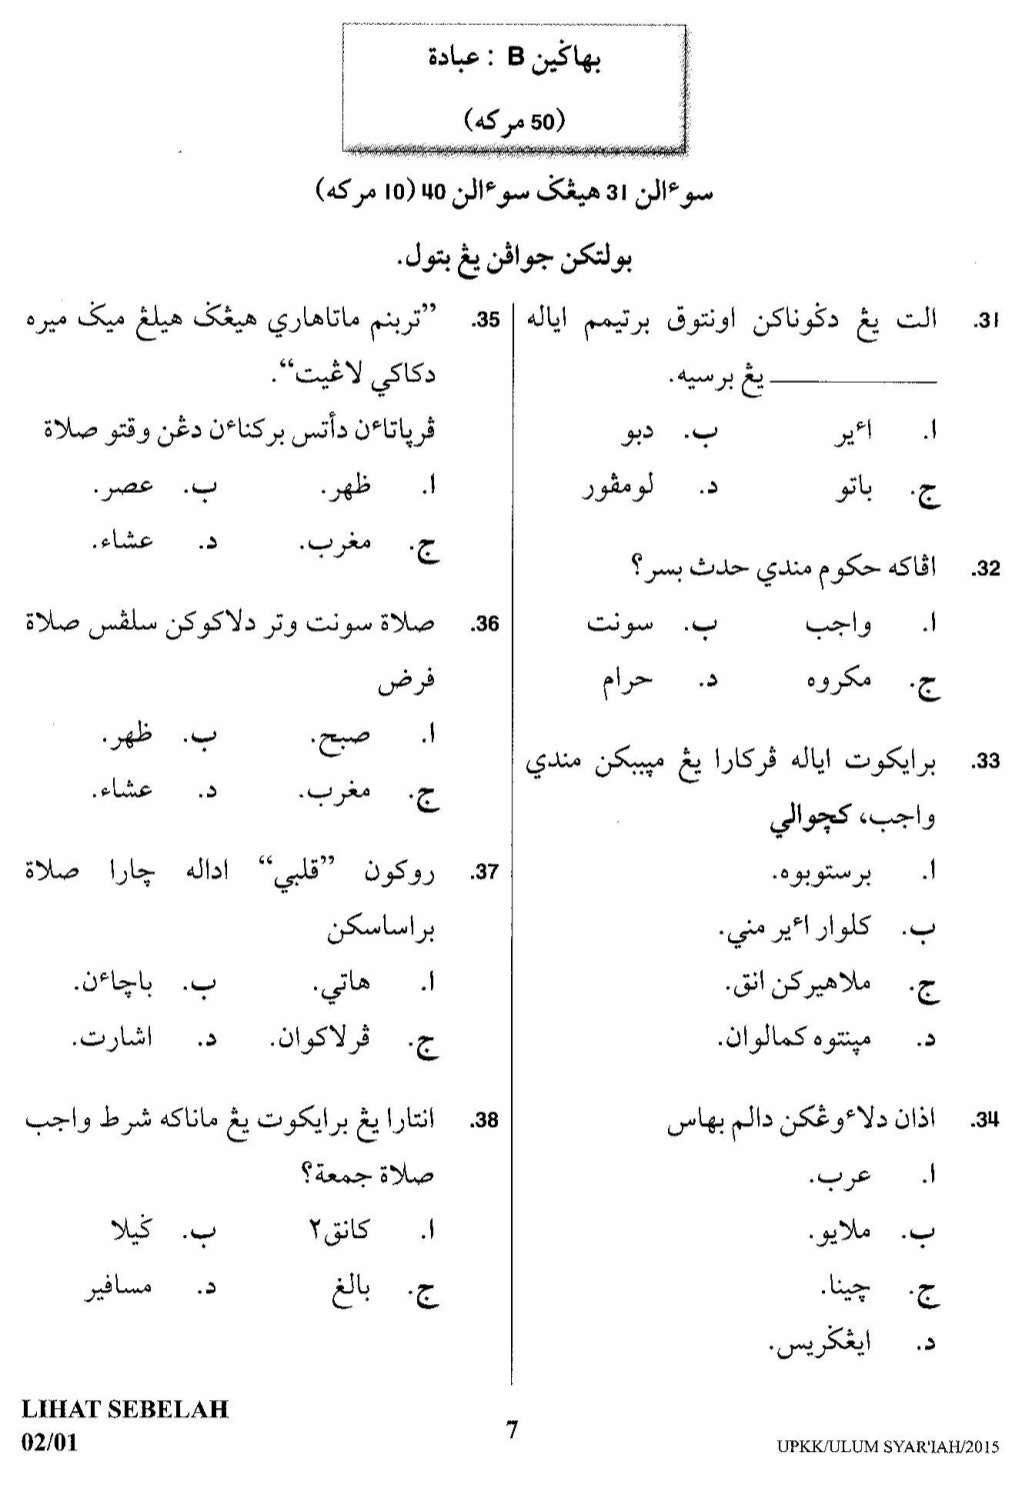 بهاڬين B : عبادة
(50 مركه)
سوءالن 31 هيڠݢ سوءالن 40 (10 مركه)
بولتكن جواڤن يڠ بتول.
31. الت يڠ دݢوناكن اونتوق برتيمم اياله
ـــــــــــــ يڠ برسيه.
ا. اءير ب. دبو
ج. باتو د. لومڤور
32. اڤاكه حكوم مندي حدث بسر؟
ا. واجب ب. سونت
ج. مكروه د. حرام
33. برايكوت اياله ڤركارا يڠ مڽببكن مندي
واجب، كچوالي
ا. برستوبوه.
ب. كلوار اءير مني.
ج. ملاهيركن انق.
د. مڽنتوه كمالوان.
34. اذان دلاءوڠكن دالم بهاس
ا. عرب.
ب. ملايو.
ج. چينا.
د. ايڠݢريس.
35. ”تربنم ماتاهاري هيڠݢ هيلڠ ميݢ ميره
دكاكي لاڠيت“.
ڤرڽاتاءن دأتس بركناءن دڠن وقتو صلاة
ا. ظهر. ب. عصر.
ج. مغرب. د. عشاء.
36. صلاة سونت وتر دلاكوكن سلڤس صلاة
فرض
ا. صبح. ب. ظهر.
ج. مغرب. د. عشاء.
37. روكون ”قلبي“ اداله چارا صلاة
براساسكن
ا. هاتي. ب. باچاءن.
ج. ڤرلاكوان. د. اشارت.
38. انتارا يڠ برايكوت يڠ ماناكه شرط واجب
صلاة جمعة؟
ا. كانق٢ ب. ݢيلا
ج. بالغ د. مسافير
LIHAT SEBELAH
02/01
7
UPKK/ULUM SYAR'IAH/2015